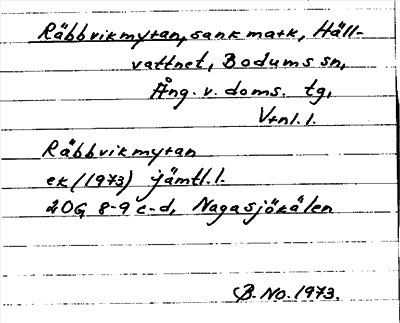 Räbbvikmyran, sankmark, Häll-
vattnet, Bodums sn,
Ång. v. doms. tg,
Vtnl. l.
Räbbvikmyran
ek (1973) jämtl. l.
20G 8-9 c-d, Nagasjökälen
B. No. 1973.